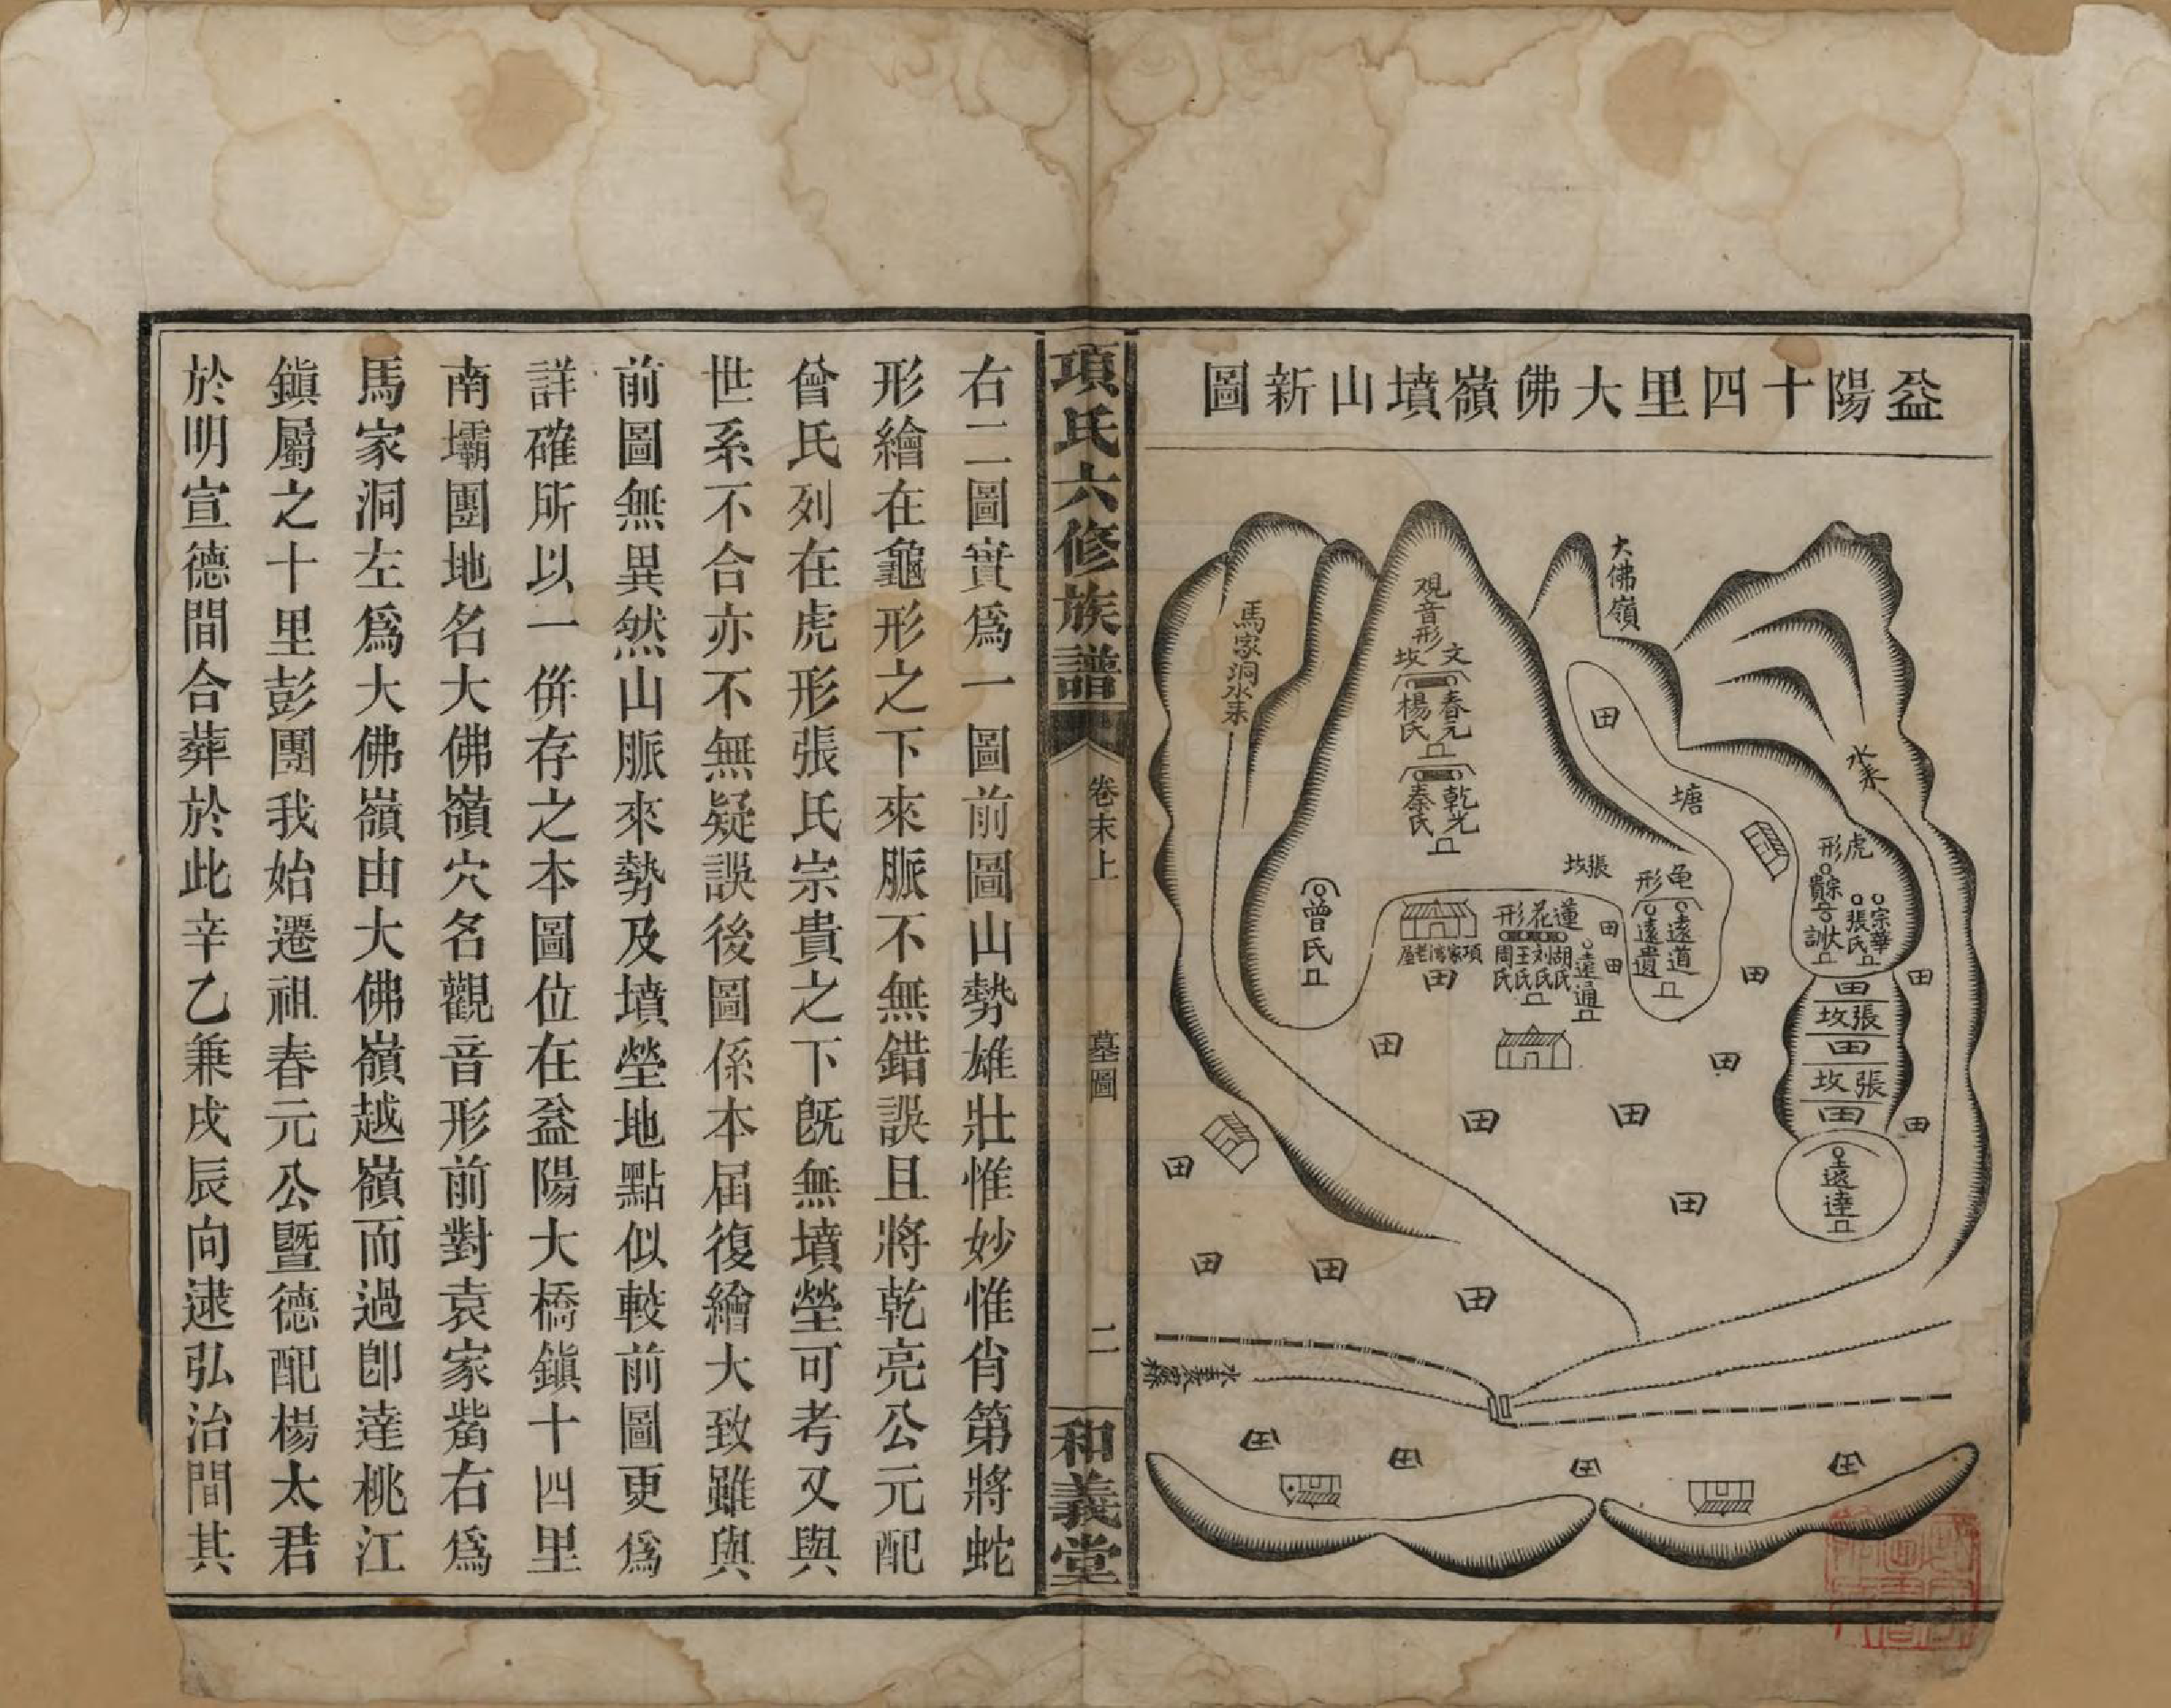 益陽十四里大佛嶺墳山新圖
大佛嶺
觀音形
文坆
春元
楊氏
乾光
秦氏
馬家洞水來
曾氏
水來
塘
張坆
虎形
宗貴
宗華
張氏
龟形
遠道
遠遺
蓮花形
遠通
胡氏
刘氏
王氏
周氏
項家灣老屋
田
張坆
田
張坆
田
遠達
項氏六修族譜
卷末上
墓圖
二
和義堂
右二圖實爲一圖前圖山勢雄壯惟妙惟肖第將蛇
形繪在龜形之下來脈不無錯誤且將乾亮公元配
曾氏列在虎形張氏宗貴之下旣無墳塋可考又與
世系不合亦不無疑誤後圖係本届復繪大致雖與
前圖無異然山脈來勢及墳塋地點似較前圖更爲
詳確所以一併存之本圖位在益陽大橋鎭十四里
南壩團地名大佛嶺穴名觀音形前對袁家嵆右爲
馬家洞左爲大佛嶺由大佛嶺越嶺而過卽達桃江
鎭屬之十里彭團我始遷祖春元公暨德配楊太君
於明宣德間合葬於此辛乙兼戌辰向逮弘治間其